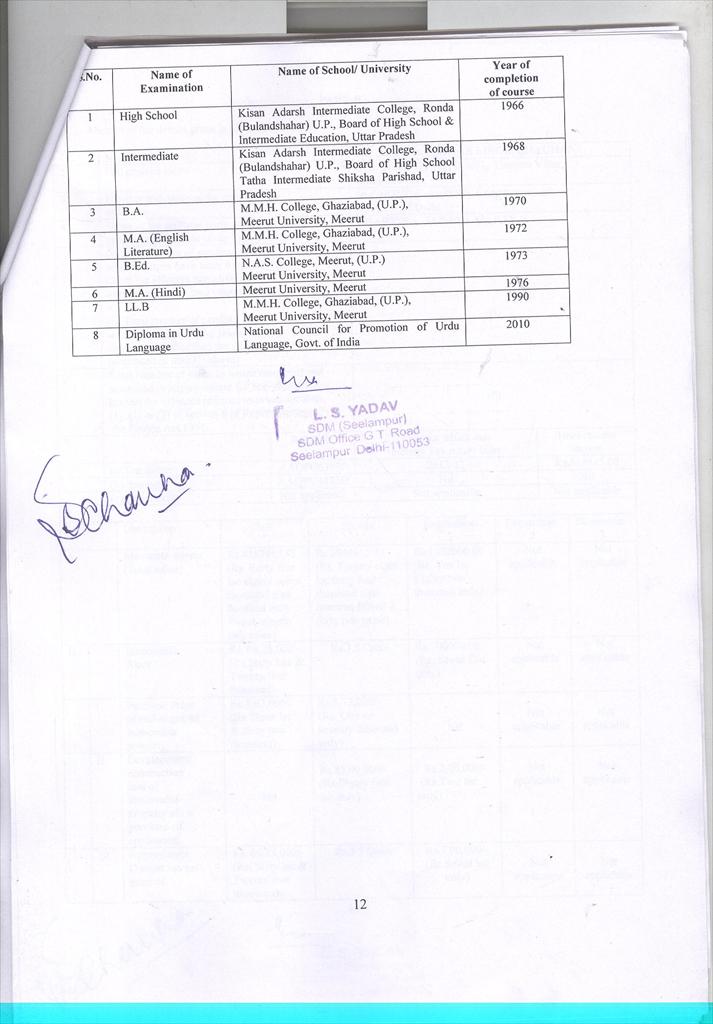 S.No.
Name of
Examination
Name of School/ University
Year of
completion
of course
1
High School
Kisan Adarsh Intermediate College, Ronda
(Bulandshahar) U.P., Board of High School &
Intermediate Education, Uttar Pradesh
1966
2
Intermediate
Kisan Adarsh Intermediate College, Ronda
(Bulandshahar) U.P., Board of High School
Tatha Intermediate Shiksha Parishad, Uttar
Pradesh
1968
3
B.A.
M.M.H. College, Ghaziabad, (U.P.),
Meerut University, Meerut
1970
4
M.A. (English
Literature)
M.M.H. College, Ghaziabad, (U.P.),
Meerut University, Meerut
1972
5
B.Ed.
N.A.S. College, Meerut, (U.P.)
Meerut University, Meerut
1973
6
M.A. (Hindi)
Meerut University, Meerut
1976
7
LL.B
M.M.H. College, Ghaziabad, (U.P.),
Meerut University, Meerut
1990
8
Diploma in Urdu
Language
National Council for Promotion of Urdu
Language, Govt. of India
2010
L. S. YADAV
SDM (Seelampur)
SDM Office G T Road
Seelampur Delhi-110053
12